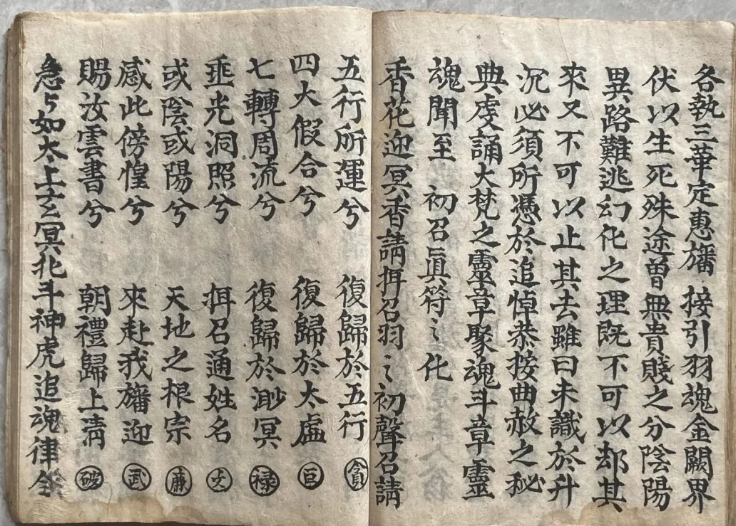 各執三華定惠旛 接引羽魂金闕界
伏以生死殊途曽無貴賤之分陰陽
異路難逃幻化之理既不可以却其
來又不可以止其去雖曰未識於升
沉必須所憑於追悼恭按曲赦之秘
典虔誦大梵之靈章聚魂斗章靈
魂聞至 初召真符〻化
香花迎冥香請拜召羽〻初聲召請
五行所運兮 復歸於五行 貪
四大假合兮 復歸於太虛 巨
七轉周流兮 復歸於渺冥 禄
垂光洞照兮 拜召通姓名 文
或陰或陽兮 天地之根宗 廉
感此傍惶兮 來赴我旛迎 武
賜汝雲書兮 朝禮歸上清 破
急〻如太上玄冥北斗神虎追魂律令